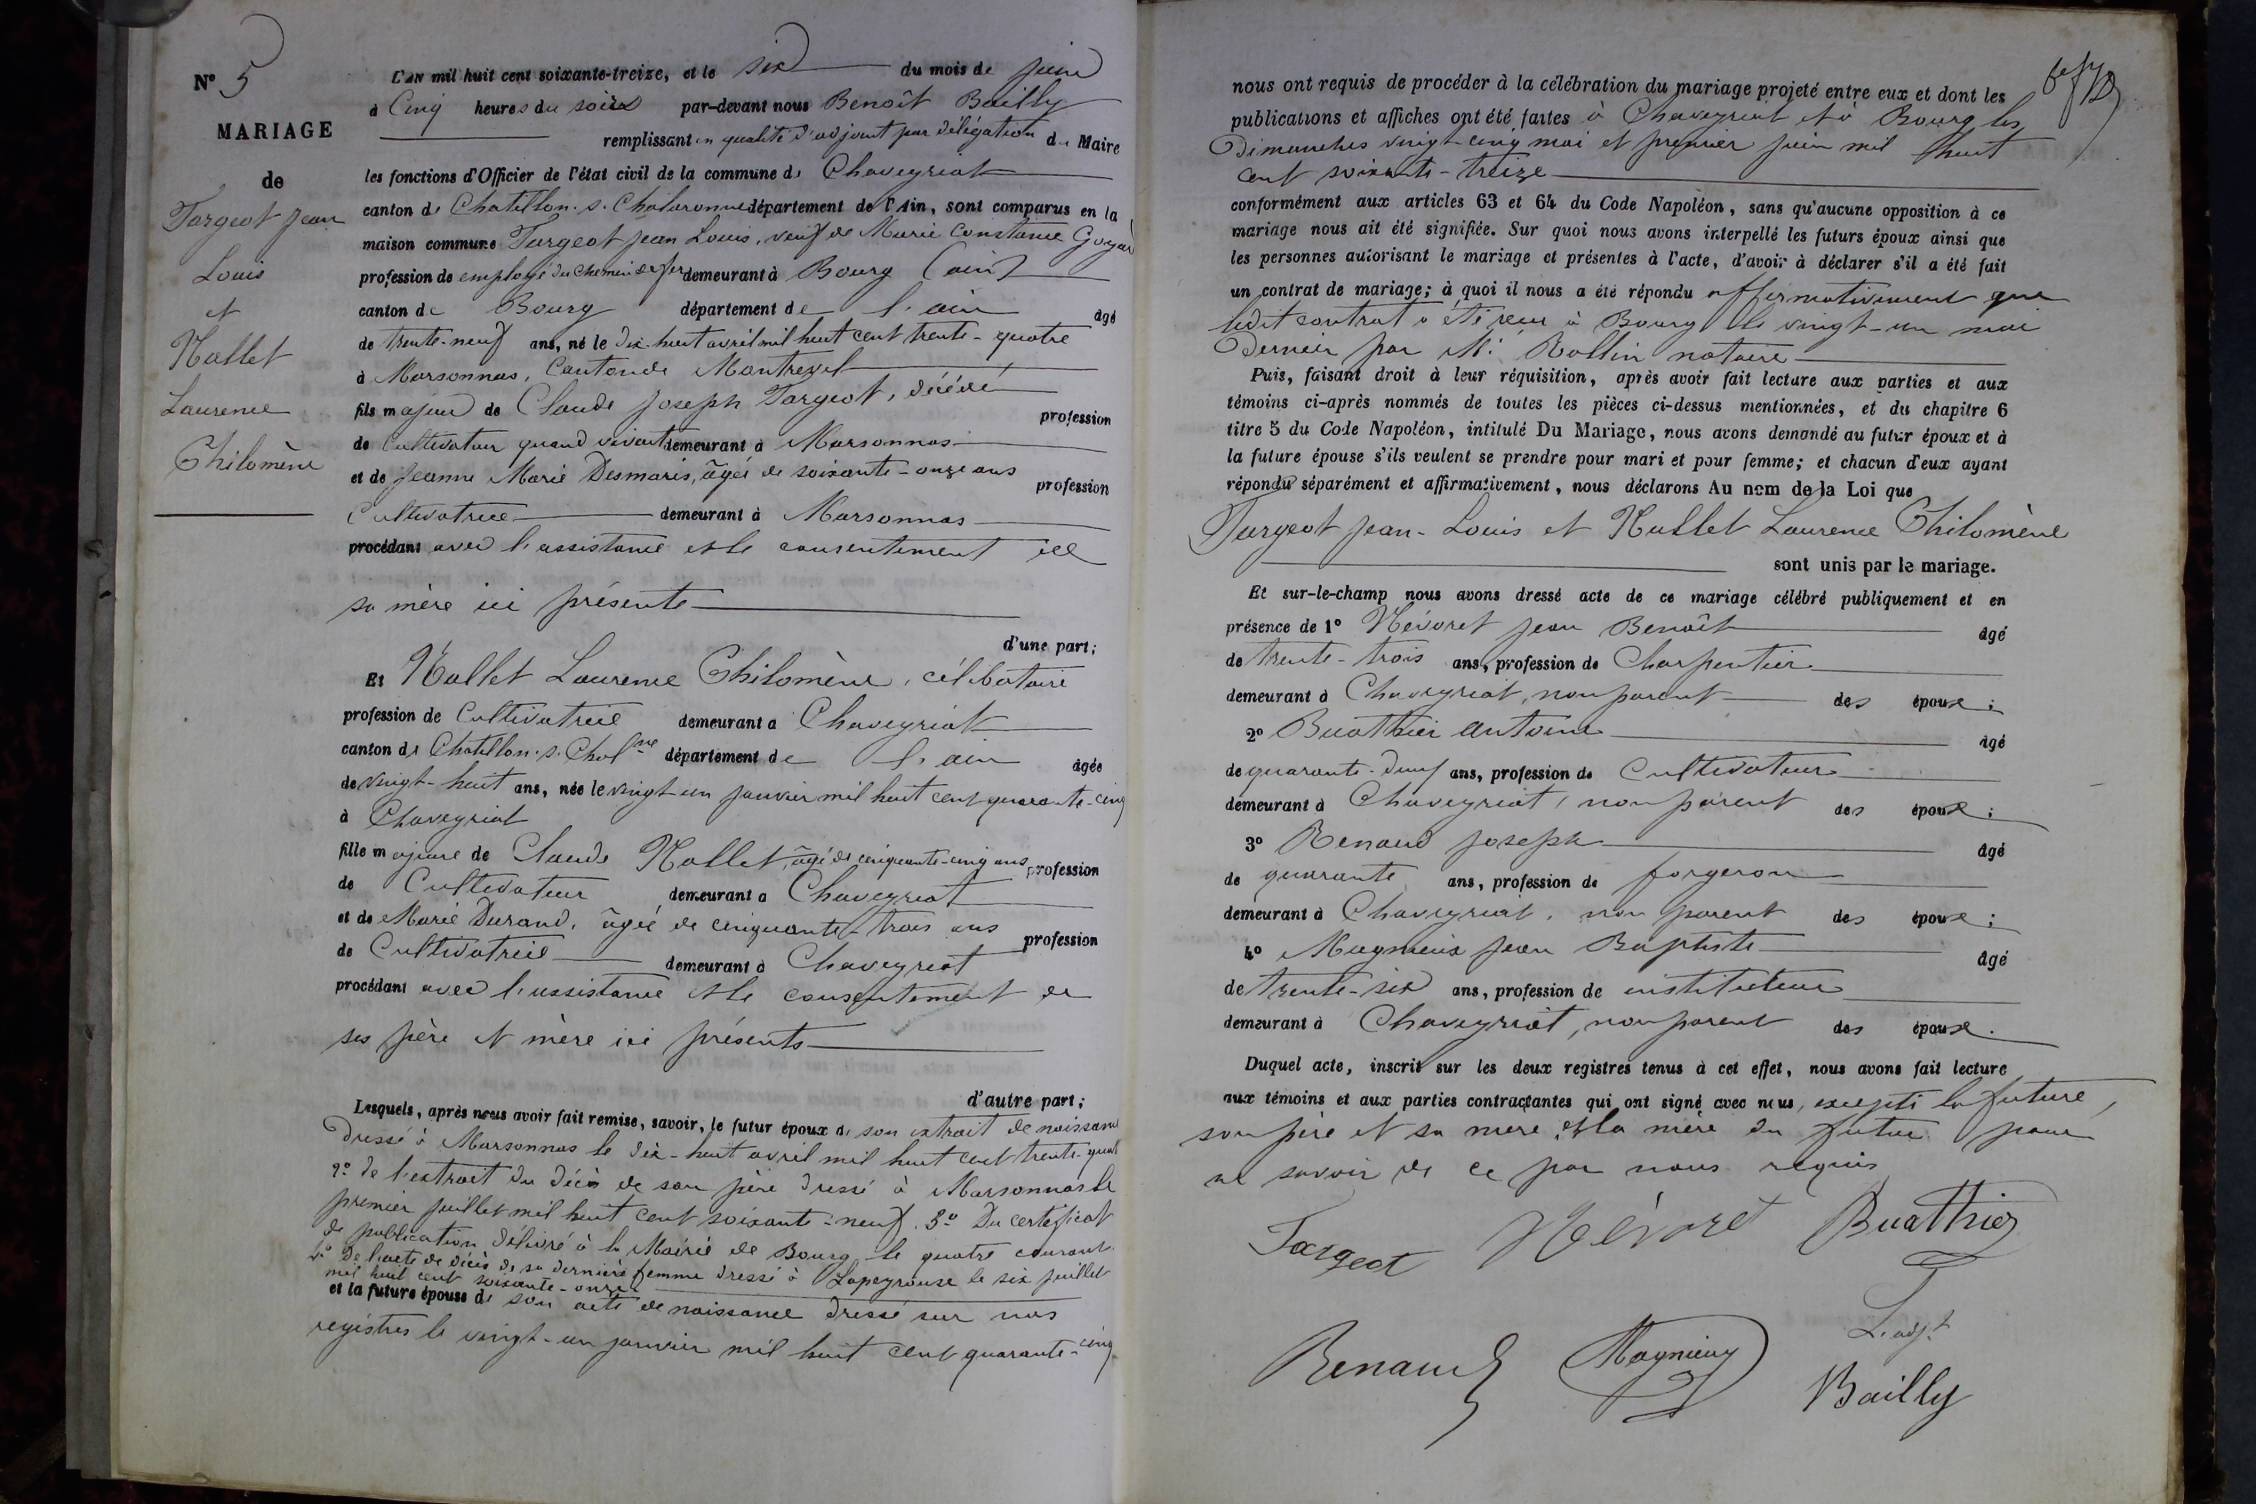 N° 5
MARIAGE
de
Targeot Jean
Louis
et
Nallet
Laurence
Philomène
L'an mil huit cent soixante-treize, et le six du mois de juin
à Cinq heures du soir par-devant nous Benoît Bailly
remplissant en qualité d'adjoint par délégation du Maire
les fonctions d'Officier de l'état civil de la commune de Chaveyriat
canton de Chatillon. s. Chalaronne département de l'Ain, sont comparus en la
maison commune Targeot Jean Louis, veuf de Marie Constance
profession de employé du Chemin de fer demeurant à Bourg (ain)
canton de Bourg département de l'ain âgé
de trente-neuf ans, né le dix-huit avril mil huit cent trente-quatre
à Marsonnas, Canton de Montrevel
fils majeur de Claude Joseph Targeot, décédé profession
de Cultivateur quand vivant demeurant à Marsonnas
et de Jeanne Marie Desmaris, âgée de soixante-onze ans profession
Cultivatrice demeurant à Marsonnas
procédant avec l'assistance et le consentement de
sa mère ici présente
d'une part;
Et Nallet Laurence Philomène, célibataire
profession de Cultivatrice demeurant à Chaveyriat
canton de Chatillon. s. Chalne département de l'ain âgée
de vingt-huit ans, née le vingt un janvier mil huit cent quarante-cinq
à Chaveyriat
fille majeure de Claude Nallet, âgé de cinquante-cinq ans profession
de Cultivateur demeurant à Chaveyriat
et de Marie Durand, âgée de cinquante-trois ans profession
de Cultivatrice demeurant à Chaveyriat
procédant avec l'assistance et le consentement de
ses père et mère ici présents
d'autre part;
Lesquels, après nous avoir fait remise, savoir, le futur époux de son extrait de naissance
dressé à Marsonnas le dix-huit avril mil huit cent trente-quatre
2° de l'extrait du décès de son père dressé à Marsonnas le
premier juillet mil huit cent soixante-neuf. 3° Du certificat
de publication délivré à la Mairie de Bourg le quatre courant
4° De l'acte de décès de sa dernière femme dressé à Lapeyrouse le six juillet
mil huit cent soixante-onze
et la future épouse de son acte de naissance dressé sur nos
registres le vingt-un janvier mil huit cent quarante-cinq
nous ont requis de procéder à la célébration du mariage projeté entre eux et dont les
publications et affiches ont été faites à Chaveyriat et à Bourg les
Dimanches vingt-cinq mai et premier juin mil huit
cent soixante-treize
conformément aux articles 63 et 64 du Code Napoléon, sans qu'aucune opposition à ce
mariage nous ait été signifiée. Sur quoi nous avons interpellé les futurs époux ainsi que
les personnes autorisant le mariage et présentes à l'acte, d'avoir à déclarer s'il a été fait
un contrat de mariage; à quoi il nous a été répondu affirmativement que
ledit contrat a été reçu à Bourg le vingt-un mai
dernier par Me Rollin notaire
Puis, faisant droit à leur réquisition, après avoir fait lecture aux parties et aux
témoins ci-après nommés de toutes les pièces ci-dessus mentionnées, et du chapitre 6
titre 5 du Code Napoléon, intitulé Du Mariage, nous avons demandé au futur époux et à
la future épouse s'ils veulent se prendre pour mari et pour femme; et chacun d'eux ayant
répondu séparément et affirmativement, nous déclarons Au nom de la Loi que
Targeot Jean-Louis et Nallet Laurence Philomène
sont unis par le mariage.
Et sur-le-champ nous avons dressé acte de ce mariage célébré publiquement et en
présence de 1° Névoret Jean Benoît âgé
de trente-trois ans, profession de Charpentier
demeurant à Chaveyriat, non parent des époux;
2° Buathier Antoine âgé
de quarante-deux ans, profession de Cultivateur
demeurant à Chaveyriat, non parent des époux;
3° Renaud Joseph âgé
de quarante ans, profession de forgeron
demeurant à Chaveyriat, non parent des époux;
4° Magnieux Jean Baptiste âgé
de trente-six ans, profession de instituteur
demeurant à Chaveyriat, non parent des époux.
Duquel acte, inscrit sur les deux registres tenus à cet effet, nous avons fait lecture
aux témoins et aux parties contractantes qui ont signé avec nous, excepté la future,
son père et sa mère et la mère du futur pour
ne savoir de ce par nous requis
Targeot Névoret Buathier
L'adjt
Renaud Magnieux Bailly